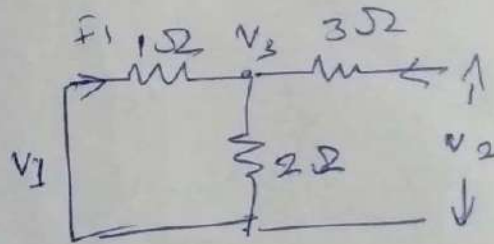 I1 1Ω V3 3Ω
V1 2Ω V2